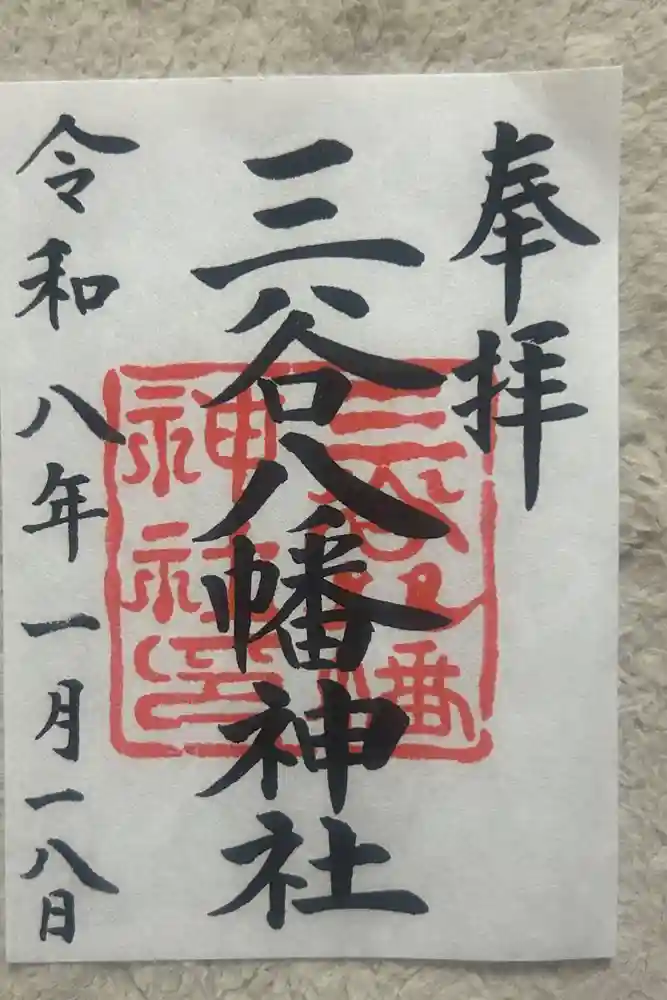 奉拝
三谷八幡神社
三谷八幡
神社
令和八年一月一八日